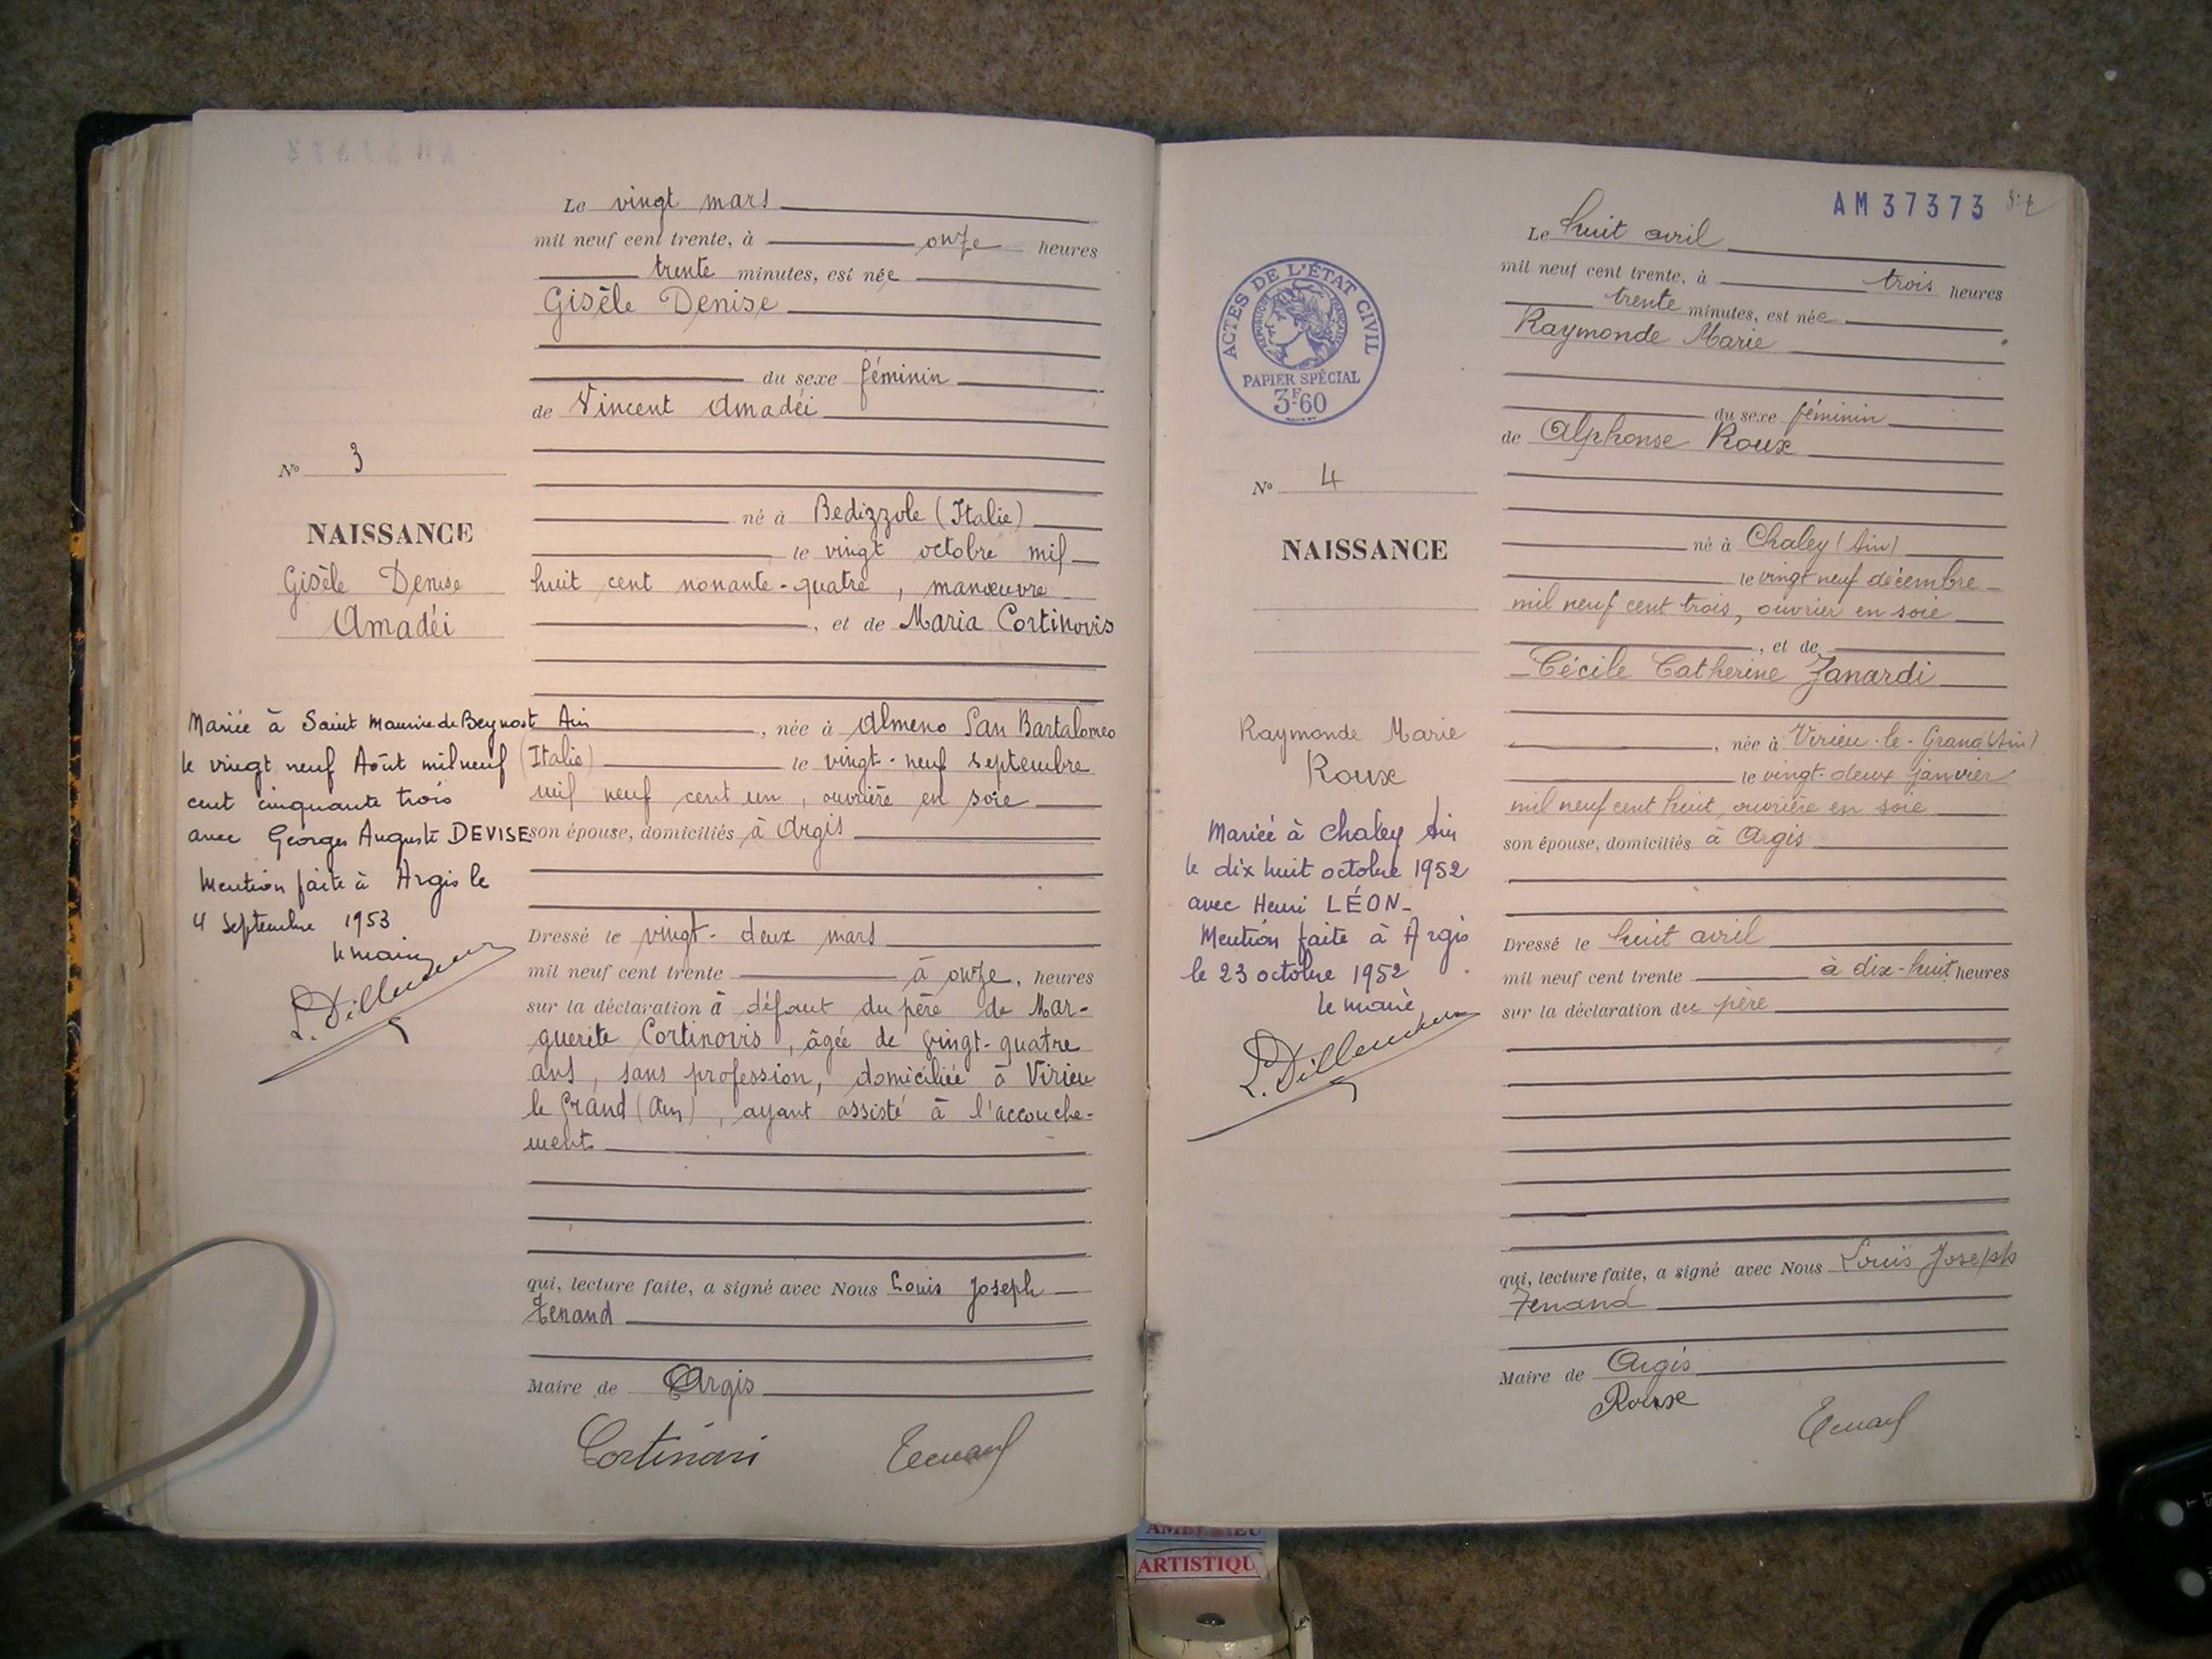 Le vingt mars
mil neuf cent trente, à onze heures
trente minutes, est née
Gisèle Denise
du sexe féminin
de Vincent Amadéi
né à Bedizzole (Italie)
le vingt octobre mil
huit cent nonante-quatre, manœuvre
, et de Maria Cortinovis
, née à Almeno San Bartalomeo
(Italie) le vingt-neuf septembre
mil neuf cent un, ouvrière en soie
son épouse, domiciliés à Argis
Dressé le vingt-deux mars
mil neuf cent trente à onze, heures
sur la déclaration à défaut du père de Mar-
guerite Cortinovis, âgée de vingt-quatre
ans, sans profession, domiciliée à Virieu
le Grand (Ain), ayant assisté à l'accouche-
ment
qui, lecture faite, a signé avec Nous Louis Joseph
Tenand
Maire de Argis
Tenand
N° 3
NAISSANCE
Gisèle Denise
Amadéi
Mariée à Saint Maurice de Beynost Ain
le vingt neuf Août mil neuf
cent cinquante trois
avec Georges Auguste DEVISE
Mention faite à Argis le
4 Septembre 1953
le maire
AM37373
Le huit avril
mil neuf cent trente, à trois heures
trente minutes, est née
Raymonde Marie
du sexe féminin
de Alphonse Roux
né à Chaley (Ain)
le vingt neuf décembre
mil neuf cent trois, ouvrier en soie
, et de
Cécile Catherine Zanardi
, née à Virieu-le-Grand (Ain)
le vingt-deux janvier
mil neuf cent huit, ouvrière en soie
son épouse, domiciliés à Argis
Dressé le huit avril
mil neuf cent trente à dix-huit heures
sur la déclaration du père
qui, lecture faite, a signé avec Nous Louis Joseph
Tenand
Maire de Argis
Roux
Tenand
ACTES DE L'ÉTAT CIVIL
RÉPUBLIQUE FRANÇAISE
PAPIER SPÉCIAL
3F60
N° 4
NAISSANCE
Raymonde Marie
Roux
Mariée à Chaley Ain
le dix huit octobre 1952
avec Henri LÉON
Mention faite à Argis
le 23 octobre 1952
le maire
ARTISTIQU